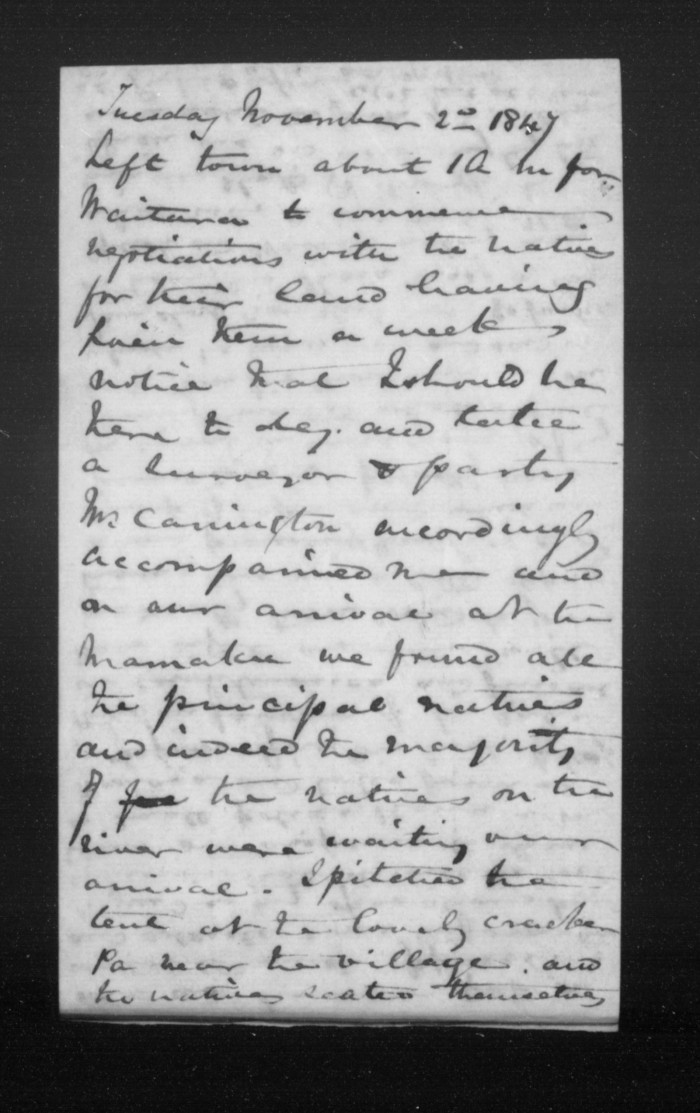 Tuesday November 2nd 1847
Left town about 10 A m for
Waitara to commence
negotiations with the natives
for their land having
given them a weeks
notice that I should be
there to day. and take
a surveyor & party
Mr Carrington accordingly
accompanied me and
on our arrival at the
Mamaku we found all
the principal natives
and indeed the majority
of the natives on the
river were waiting our
arrival. I pitched the
tent at the lovely
Pa near the village. and
the natives seated themselves